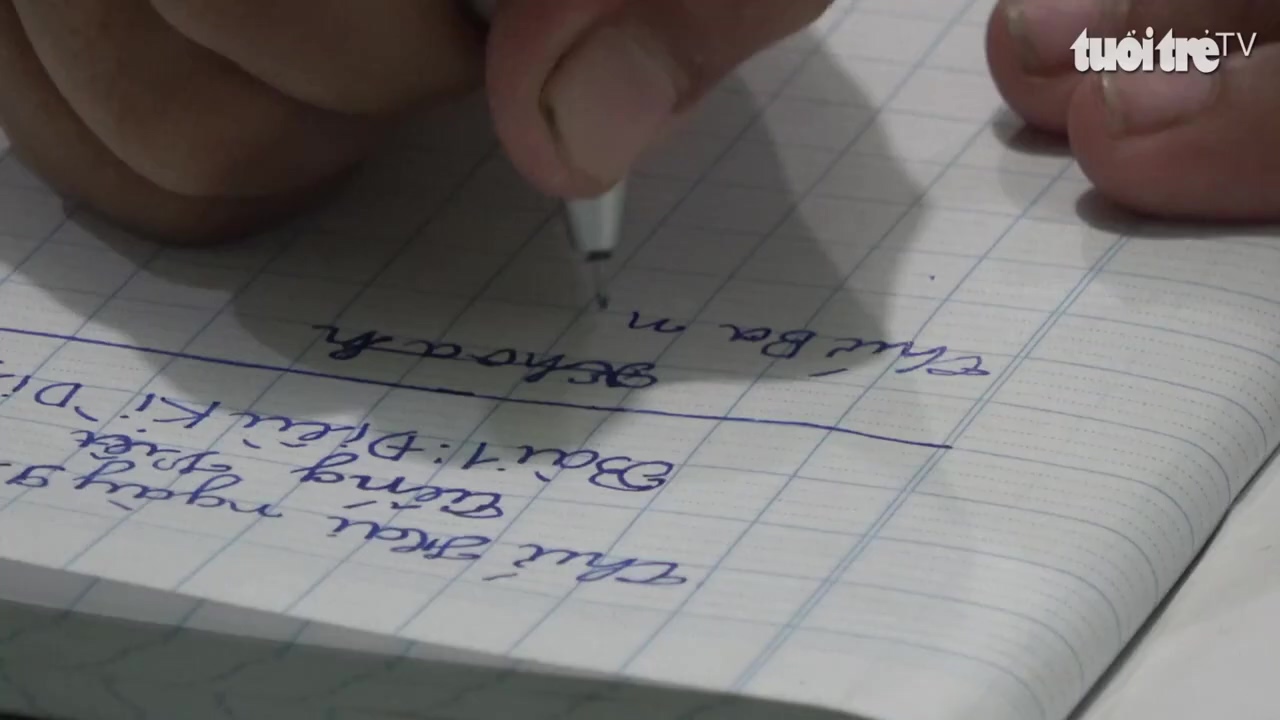 tuổi trẻ TV
Thứ Hai ngày 9
Tiếng Việt
Bài 1: Điều Kì Di
Khoa h
Thứ Ba n